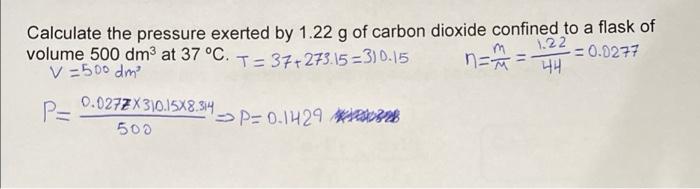 Calculate the pressure exerted by 1.22 g of carbon dioxide confined to a flask of
volume 500 dm³ at 37 ºC. T = 37+273.15=310.15 n=m/M = 1.22/44 = 0.0277
V = 500 dm³
P= 0.0277×310.15×8.314/500 ⇒ P= 0.1429